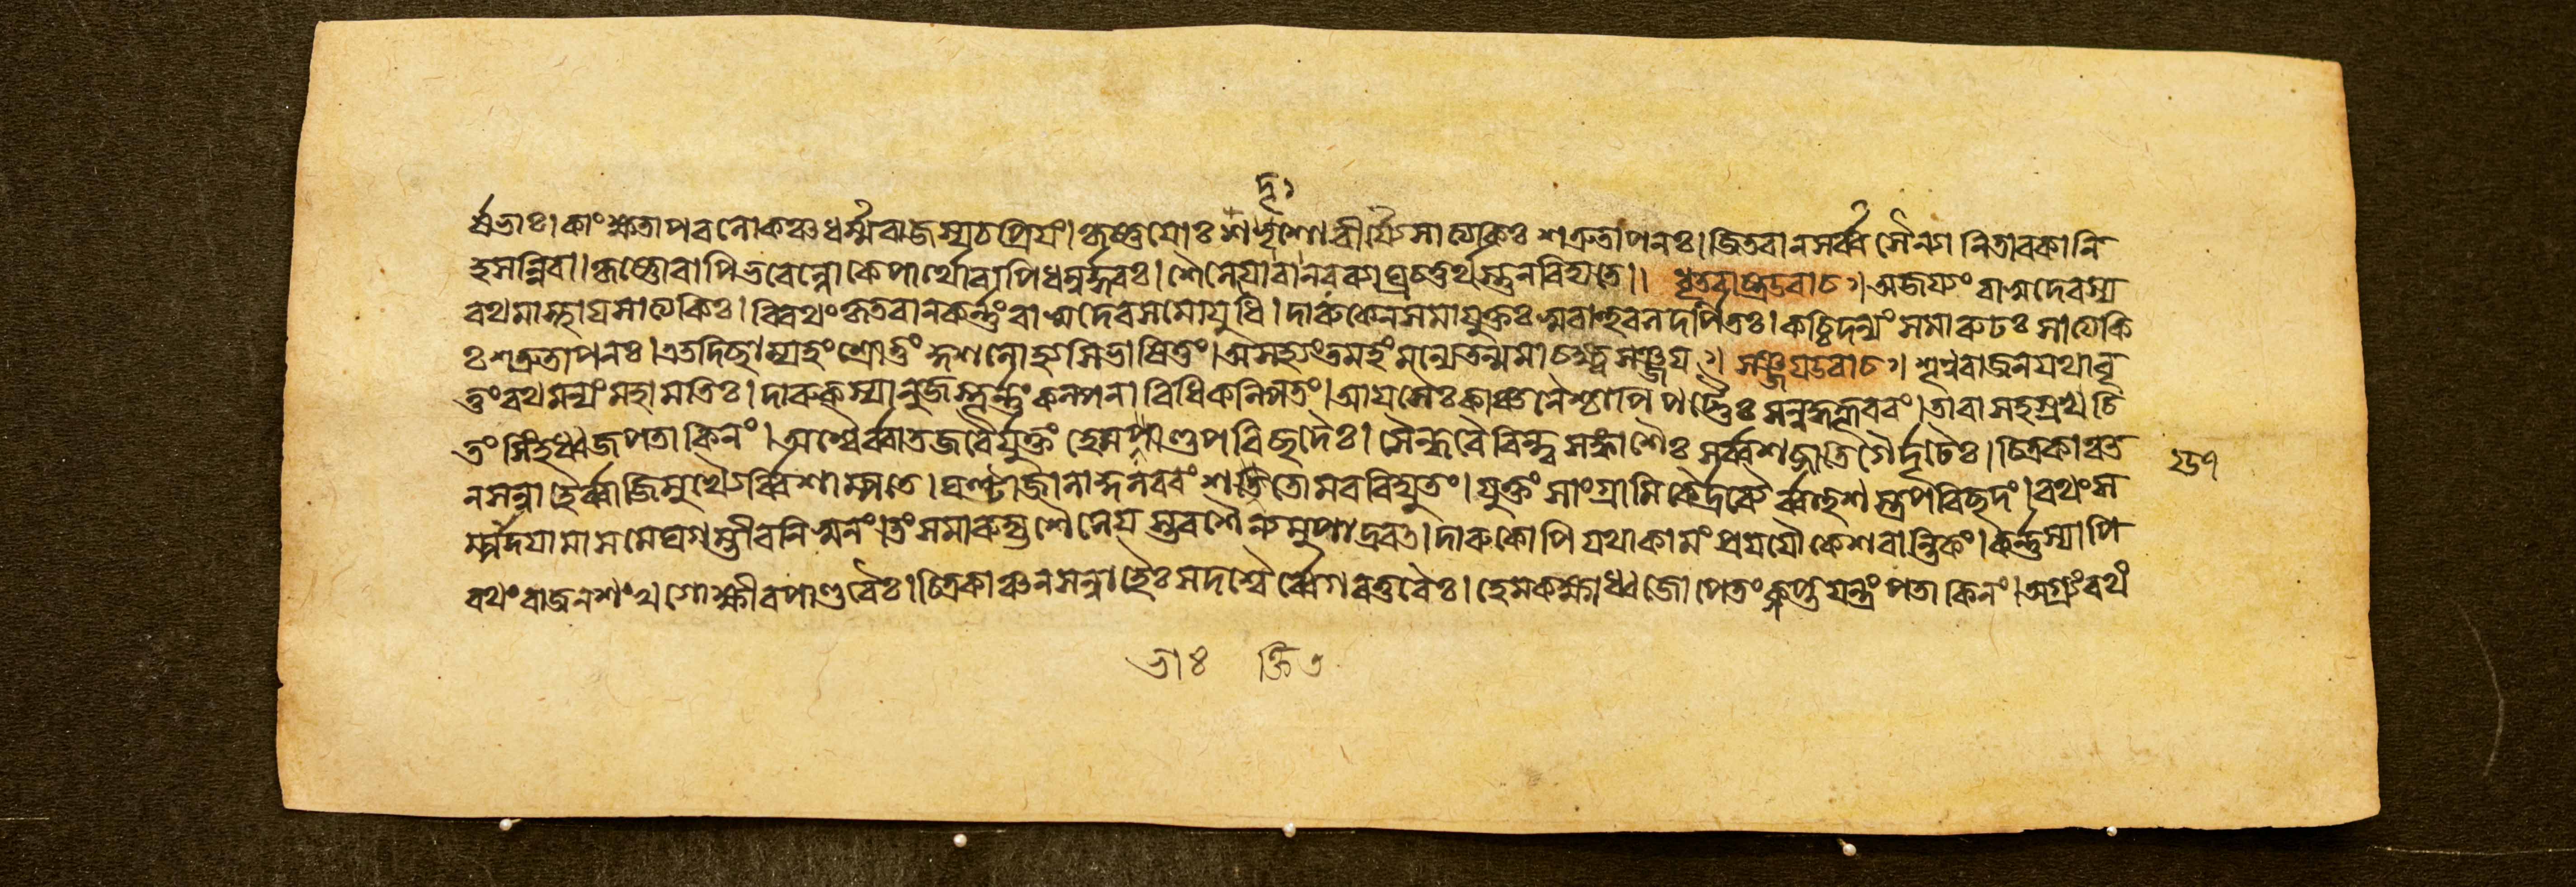 র্ষভাঃ। কাংক্ষতাপরলোকঞ্চ ধর্ম্মরাজস্যচপ্রিয়ং। কৃষ্ণয়োঃ শদৃশোবীর্য্যেসাত্যকিঃ শত্রুতাপনঃ। জিতবানসর্ব্বসৈন্যানিতাবকানি
হসন্নিবা। কৃষ্ণোবাপিভবেল্লোকেপার্থোবাপিধনুর্দ্ধরঃ। শৈনেয়োবানরব্যাঘ্রচতুর্থস্তুনবিদ্যতে।। ধৃতরাষ্ট্রউবাচ। অজয়্যং বাসুদেবস্য
রথমাস্থায়সাত্যকিঃ। বিরথংকৃতবানকর্ন্নং বাসুদেবসমোযুধি। দারুকেনসমাযুক্তঃ স্ববাহুবলদর্পিতঃ। কচ্চিদন্যং সমারূঢঃ সাত্যকি
ঃ শত্রুতাপনঃ। এতদিছাম্যহং শ্রোতুং কুশলোহ্যসিভাষিতুং। অসহ্যংতমহংমন্যেতন্মমাচক্ষ্বসঞ্জয়। সঞ্জয়উবাচ। শৃণুরাজনযথাবৃ
ত্তংরথমন্যংমহামতিঃ। দারুকস্যানুজস্তূর্ন্নং কল্পনাবিধিকল্পিতং। আয়সৈঃ কাঞ্চনৈশ্চাপিপট্টৈঃ সন্নদ্ধকূবরং। তারাসহস্রখচি
তং সিংহধ্বজপতাকিনং। অশ্বৈর্ব্বাতজবৈর্যুক্তং হেমভাণ্ডপরিছদৈঃ। সৈন্ধবৈরিন্দুসঙ্কাশৈঃ সর্ব্বশব্দাতিগৈর্দৃঢৈঃ। চিত্রকাঞ্চ
নসন্নাহৈর্ব্বাজিমুখ্যৈর্ব্বিশাম্পতে। ঘণ্টাজালাকুলরবং শক্তিতোমরবিদ্যুতং। যুক্তং সাংগ্রামিকৈর্দ্রব্যৈর্ব্বহুশস্ত্রপরিছদং। রথংস
ম্পাদয়ামাসমেঘগম্ভীরনিস্বনং। তংসমারুহ্যশৈনেয়স্তবশৈন্যমুপাদ্রবত। দারুকোপিযথাকামং প্রযযৌকেশবান্তিকং। কর্ন্নস্যাপি
রথং রাজনশংখগোক্ষীরপাণ্ডুরৈঃ। চিত্রকাঞ্চনসন্নাহৈঃ সদশ্বৈর্ব্বেগবত্তরৈঃ। হেমকক্ষ্যাধ্বজোপেতং কৢপ্তযন্ত্রং পতাকিনং। অগ্র্যংরথং